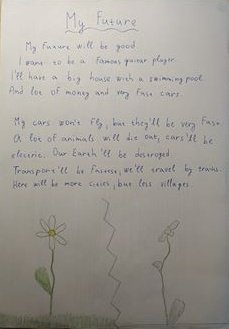 My Future
My Future will be good.
I want to be a famous guitar player.
I'll have a big house with a swimming pool.
And lot of money and very fast cars.
My cars won't fly, but they'll be very fast
A lot of animals will die out, cars'll be
electric. Our Earth'll be destroyed.
Transport'll be fastest, we'll travel by trains.
Here will be more cities, but less villages.